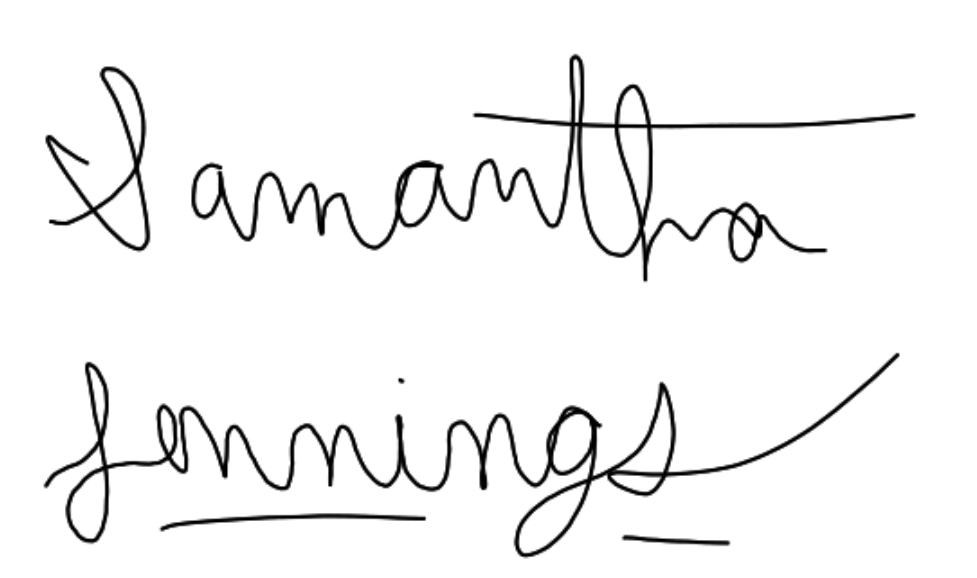 Samantha
Jennings